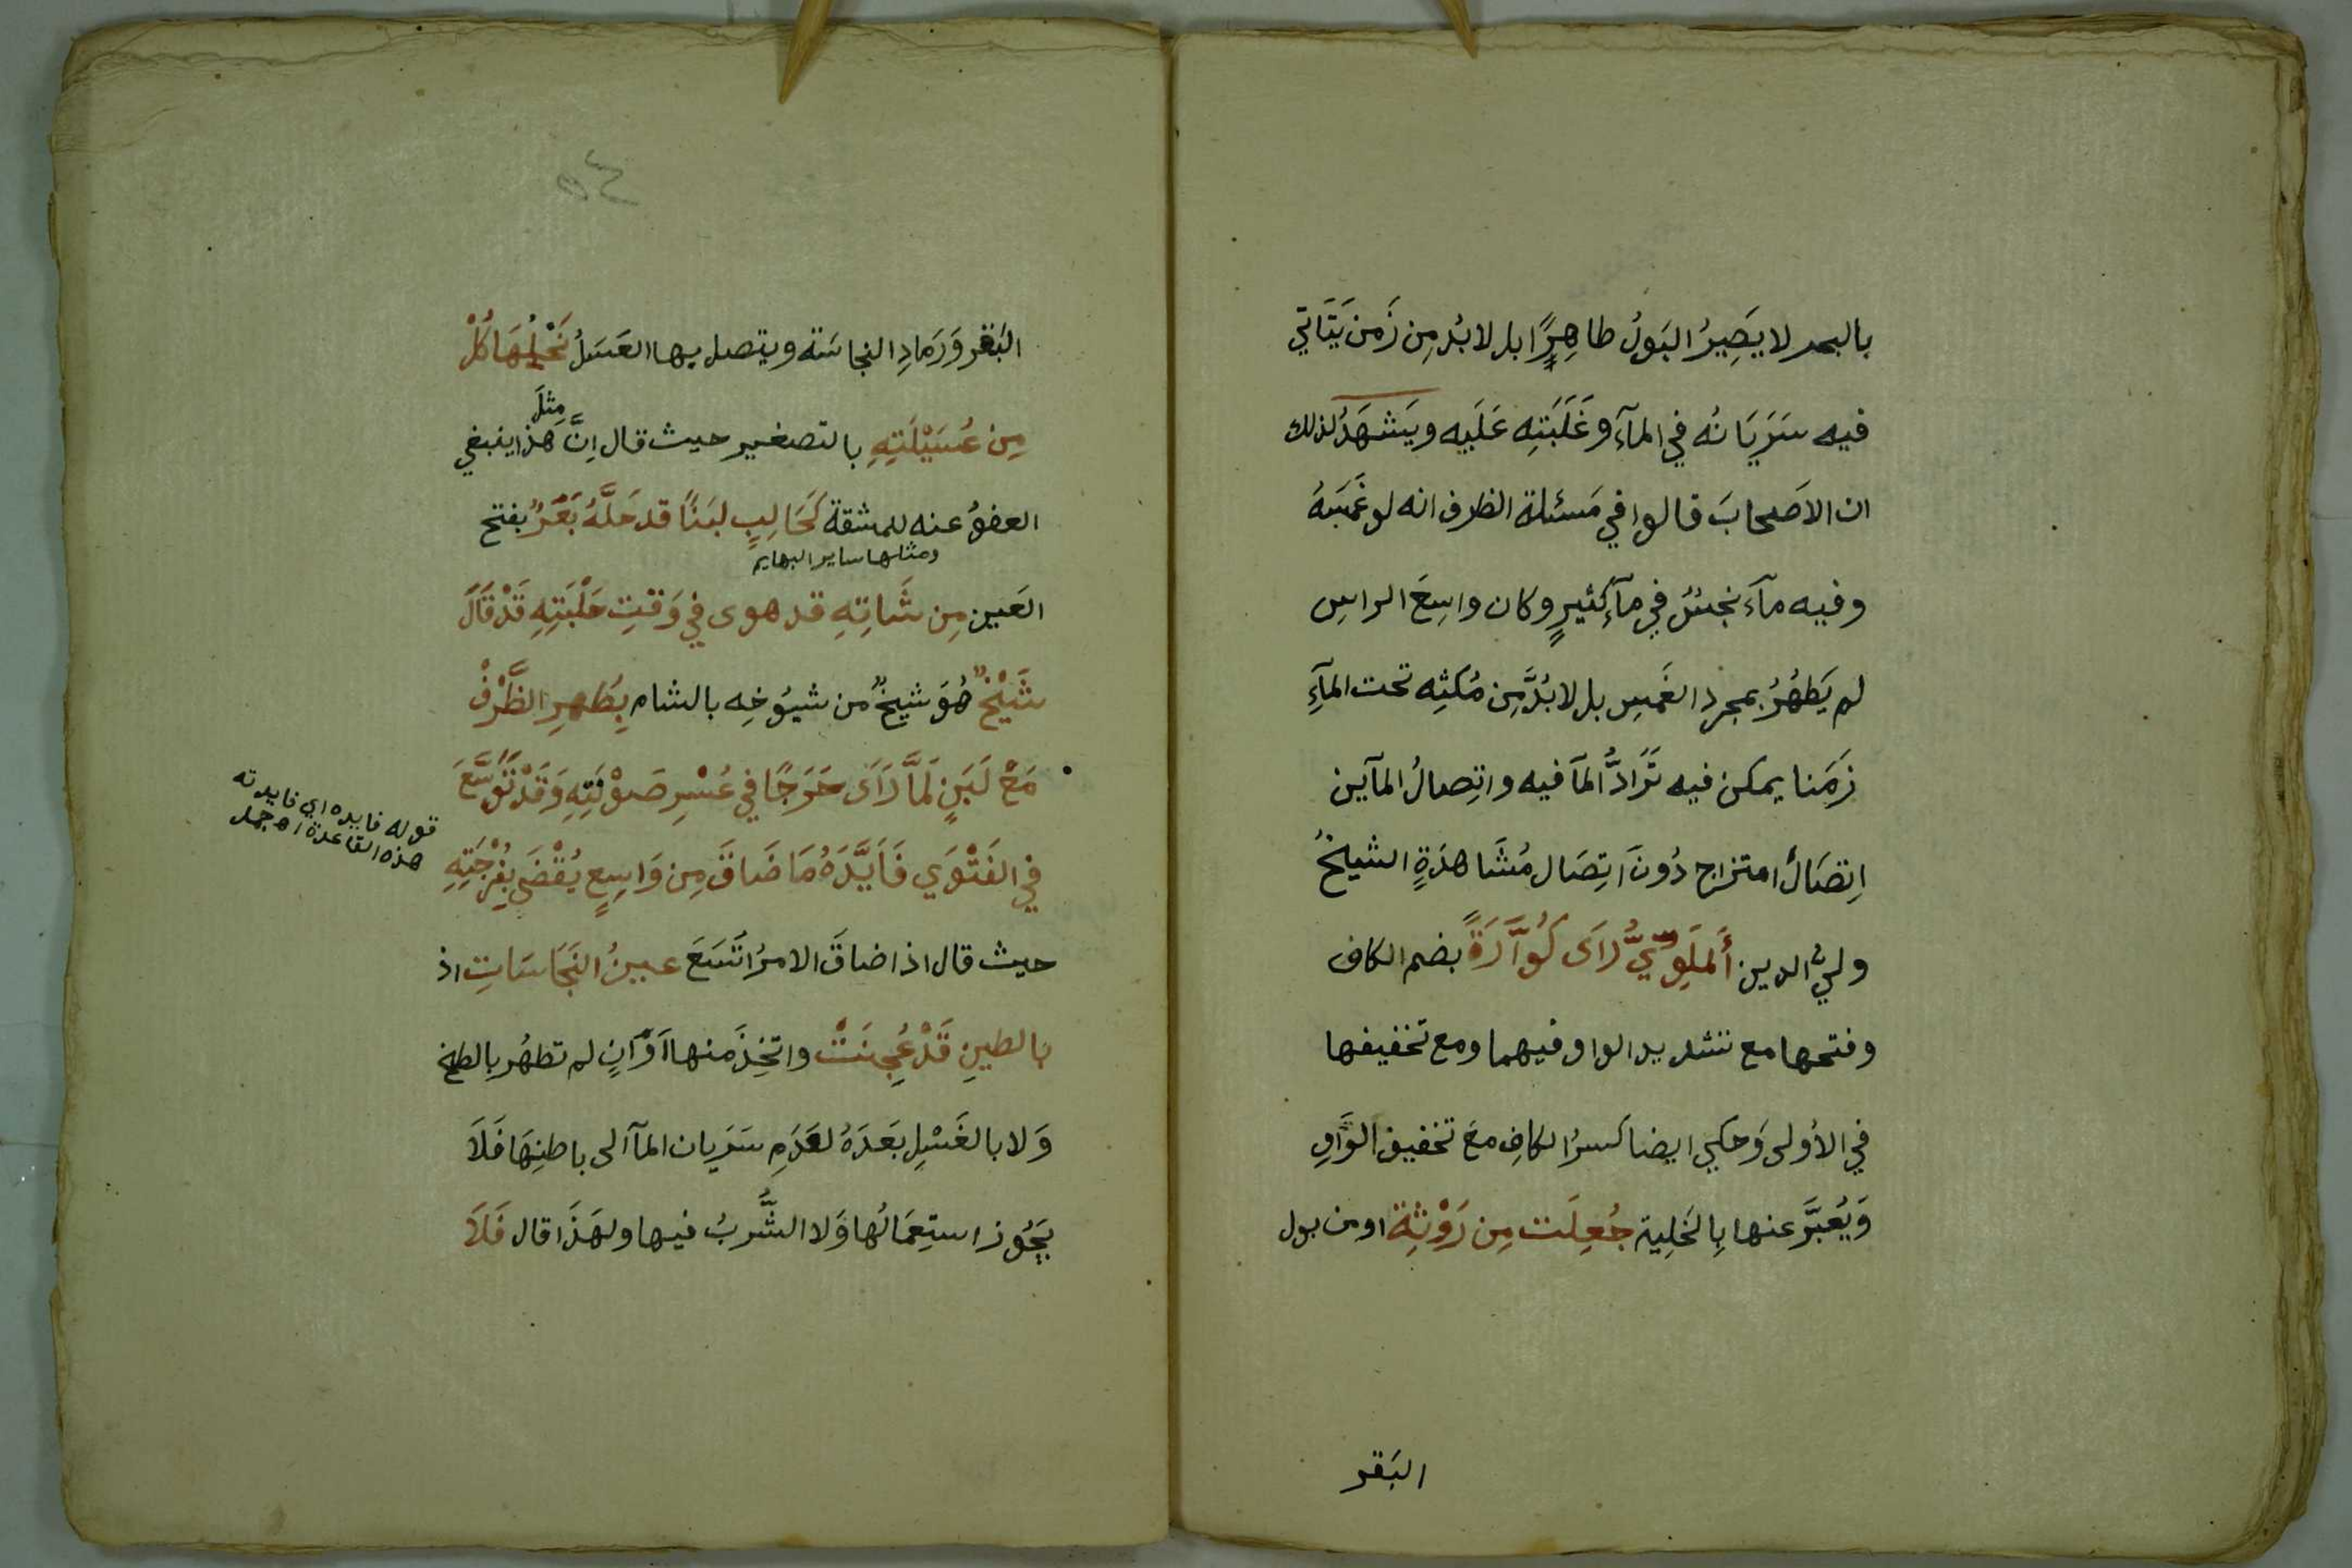 بالبحر لا يَصِيرُ البَولُ طاهِرًا بل لابُد مِن زَمن يَتَاتي
فيه سَرَيَانُه في المآءِ وغَلَبَتِه عَلَيه ويَشهَدُ لذلك
ان الاَصحابَ قالوا في مَسئلة الظرف انه لو غَمَسَهُ
وفيه مآءٌ نجسٌ في مآءٍ كثيرٍ وكان واسِعَ الراسِ
لم يَطهُرُ بمجرد الغَمسِ بل لابُدَّ مِن مُكثِه تحت المآءِ
زَمَنا يمكن فيه تَرَادُّ المآ فيه واتِصالُ المآين
اِتصَالُ امتزاج دُونَ اتِصَال مُشَاهدَةٍ الشيخُ
وليُّ الدين أَلمَلَوِيُّ رَاَى كُوَّارَةً بضم الكاف
وفتحها مع تشديد الواو فيهما ومع تخفيفها
في الأولى وَحكي ايضا كسرُ الكافِ معَ تخفيف الوَاوِ
وَيُعَبَّر عنها بِالخَلِية جُعِلَت مِن رَوْثِةِ اومن بول
البَقر
٥٤
البَقر وَرَمادِ النجاسَة ويتصل بها العَسَلُ نَحْلُهَا كُلْ
مِن عُسَيْلَتِهِ بالتصغير حيث قال اِنَّ مِثلَ هذا ينبغي
العفوُ عنه للمشقة كَحَالِبٍ لبَنًا قد حَلَّهُ بَعَرٌ بفتح
ومثلها ساير البهايم
العَين مِن شَاتِهِ قد هوى في وَقتِ حَلْبَتِهِ قَدْ قَالَ
شَيْخٌ هُوَ شيخٌ من شيُوخِه بالشام بِطُهرِ الظَّرْفْ
مَعْ لَبَنٍ لَمَّا رَاَى حَرَجًا في عُسْرِ صَوْنَتِهِ وَقَدْ تَوَسَّعَ
في الفَتْوَي فَاَيَّدَهُ مَا ضَاقَ مِن وَاسِعٍ يُقْضَى بِفُرْجَتِهِ
قوله فايده اي فايدته
هذه القاعدة اه جمل
حيث قال اذا ضاقَ الامرُ اتَسَعَ عينُ النَجَاسَاتِ اذ
بالطينِ قَدْ عُجِنَتْ واتخِذَ منها اَوَانٍ لم تطهُر بِالطبخ
وَلا بالغَسْلِ بَعدَهُ لعَدَمِ سَرَيان المآ الى باطنِهَا فَلَا
يَجُوز استِعمَالُها وَلا الشُّربُ فيها ولهَذَا قال فَلَا